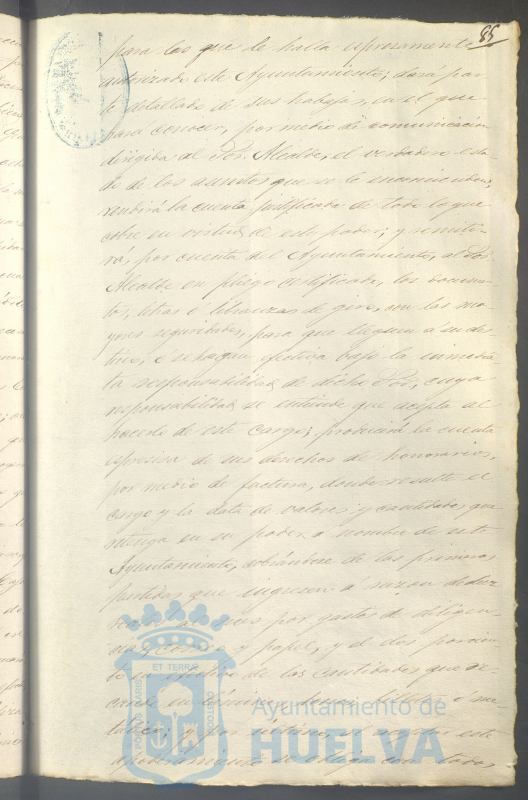 85
para los que se halla espresamente
autorizado este Ayuntamiento; dará par-
te detallado de sus trabajos, en el que
para conocer, por medio de comunicación
dirigida al Sor. Alcalde, el verdadero esta-
do de los asuntos que se le encomiendan;
rendirá la cuenta justificada de todo lo que
cobre en virtud de este poder; y remiti-
rá, por cuenta del Ayuntamiento, al Sor.
Alcalde en pliego certificado, los documen-
tos, letras o libranzas de giro, con las ma-
yores seguridades, para que lleguen a su des-
tino, o se hagan efectiva bajo la inmedia-
ta responsabilidad de dicho Sor., cuya
responsabilidad se entiende que acepta al
hacerlo de este cargo; producirá la cuenta
espresiva de sus derechos de honorarios,
por medio de factura, donde resulte el
cargo y la data de valores y cantidades que
tenga en su poder a nombre de este
Ayuntamiento, cobrándose de las primeras
partidas que ingresen á razon de diez
por gastos de diligen-
y papel, y el dos por cien-
to de las cantidades que re-
caude en
y por este
apoderamiento se obliga con todos
PORTUS MARIS ET TERRAE CUSTODIA
Ayuntamiento de
HUELVA